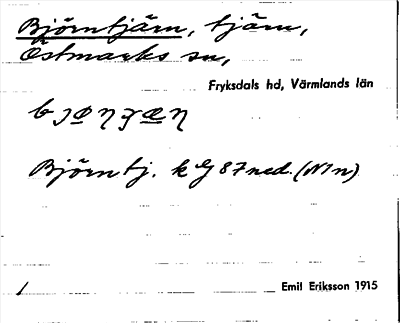 Björntjärn, tjärn,
Östmarks sn,
Fryksdals hd, Värmlands län
Björntj. k G 87 ned. (N1n)
1
Emil Eriksson 1915